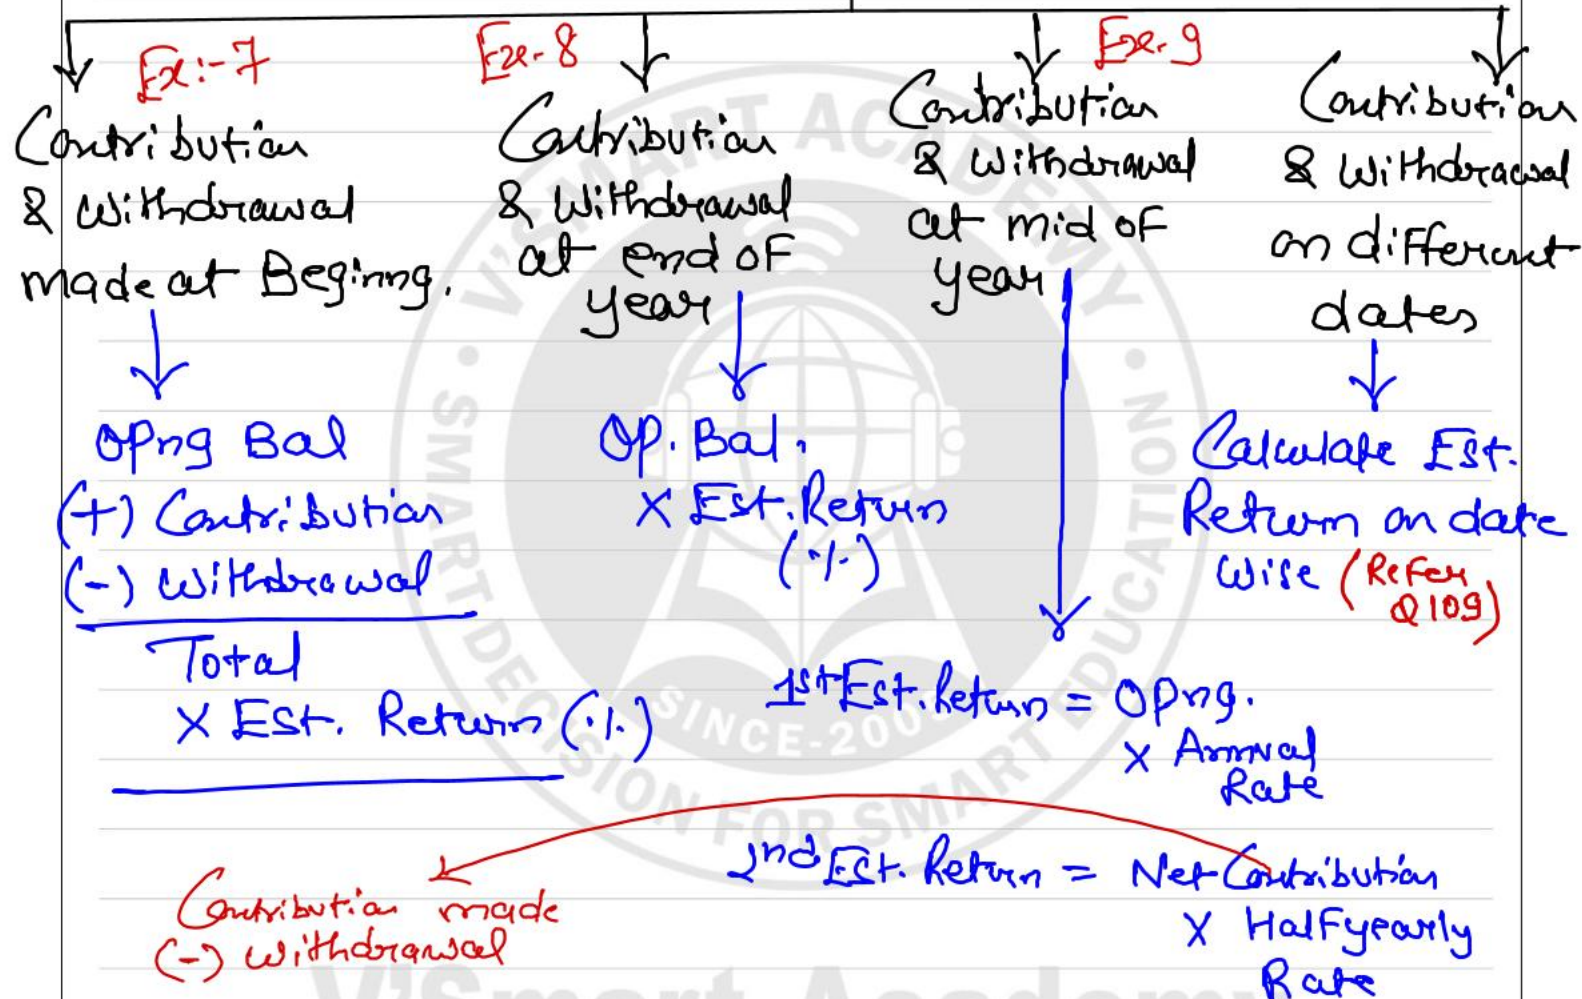 Ex:-7
Contribution
& Withdrawal
made at Beginng.
Opng Bal
(+) Contribution
(-) Withdrawal
Total
X Est. Return (%)
Ex-8
Contribution
& Withdrawal
at end of
year
Op. Bal.
X Est. Return
(%)
Ex-9
Contribution
& Withdrawal
at mid of
year
1st Est. Return = Opng.
X Annual
Rate
2nd Est. Return = Net Contribution
X Halfyearly
Rate
Contribution made
(-) Withdrawal
Contribution
& Withdrawal
on different
dates
Calculate Est.
Return on date
wise (Refer
Q109)
V'SMART ACADEMY
SMART DECISION FOR SMART EDUCATION
SINCE-200
V'Smart Academy